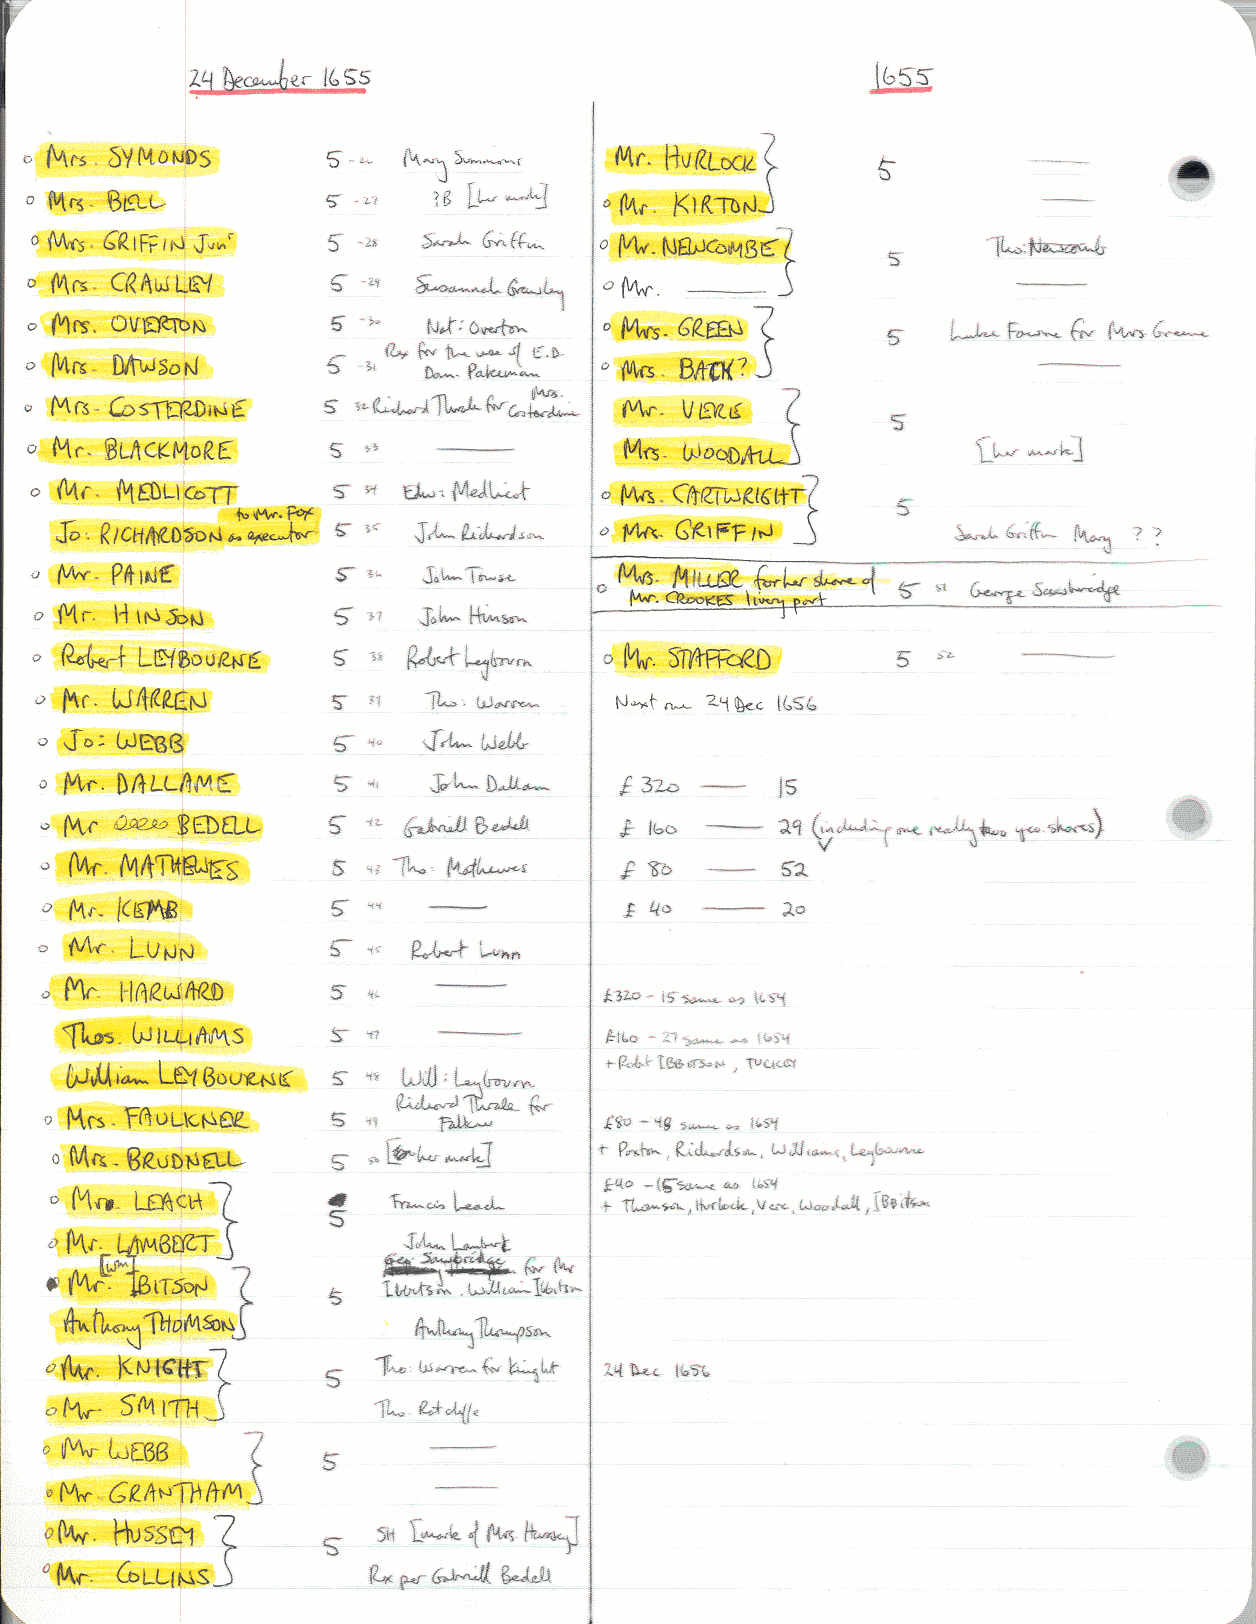 24 December 1655
Mrs. SYMONDS 5 - 26 Mary Symmons
Mrs. BELL 5 - 27 ?B [her mark]
Mrs. GRIFFIN Junr 5 - 28 Sarah Griffin
Mrs. CRAWLEY 5 - 29 Susannah Crawley
Mrs. OVERTON 5 - 30 Nat: Overton
Rex for the use of E.D.
Mrs. DAWSON 5 - 31 Dan. Pakeman
Mrs. COSTERDINE 5 32 Richard Thrale for Mrs. Costerdine
Mr. BLACKMORE 5 33 ——
Mr. MEDLICOTT 5 34 Edw: Medlicot
to Mr. Fox
Jo: RICHARDSON as executor 5 35 John Richardson
Mr. PAINE 5 36 John Towse
Mr. HINSON 5 37 John Hinson
Robert LEYBOURNE 5 38 Robert Leybourn
Mr. WARREN 5 39 Tho: Warren
Jo: WEBB 5 40 John Webb
Mr. DALLAME 5 41 John Dallam
Mr BEDELL 5 42 Gabriell Bedell
Mr. MATHEWES 5 43 Tho: Mathewes
Mr. KEMB 5 44 ——
Mr. LUNN 5 45 Robert Lunn
Mr. HARWARD 5 46 ——
Thos. WILLIAMS 5 47 ——
William LEYBOURNE 5 48 Will: Leybourn
Richard Thrale for
Mrs. FAULKNER 5 49 Falkner
Mrs. BRUDNELL 5 50 [her mark]
Mrs. LEACH 5 Francis Leach
Mr. LAMBERT John Lambert
[Wm] Geo. Sawbridge for Mr
Mr. IBITSON 5 Ibbitson. William Ibbitson
Anthony THOMSON Anthony Thompson
Mr. KNIGHT 5 Tho: Warren for Knight
Mr. SMITH Tho. Ratcliffe
Mr WEBB 5 ——
Mr. GRANTHAM ——
Mr. HUSSEY 5 SH [mark of Mrs. Hussey]
Mr. COLLINS Rx per Gabriell Bedell
1655
Mr. HURLOCK 5 ——
Mr. KIRTON ——
Mr. NEWCOMBE 5 Tho: Newcomb
Mr. —— ——
Mrs. GREEN 5 Luke Fawne for Mrs Greene
Mrs. BACK? ——
Mr. VERE 5
Mrs. WOODALL [her mark]
Mrs. CARTWRIGHT 5
Mrs. GRIFFIN Sarah Griffin Mary ??
Mrs. MILLER for her share of 5 51 George Sawbridge
Mr. CROOKES livery part
Mr. STAFFORD 5 52 ——
Next one 24 Dec 1656
£ 320 —— 15
£ 160 —— 29 (including one really two yeo. shares)
£ 80 —— 52
£ 40 —— 20
£320 - 15 same as 1654
£160 - 27 same as 1654
+ Robt IBBITSON, TUCKEY
£80 - 48 same as 1654
+ Paxton, Richardson, Williams, Leybourne
£40 - 15 same as 1654
+ Thomson, Hurlock, Vere, Woodall, IBBitson
24 Dec 1656